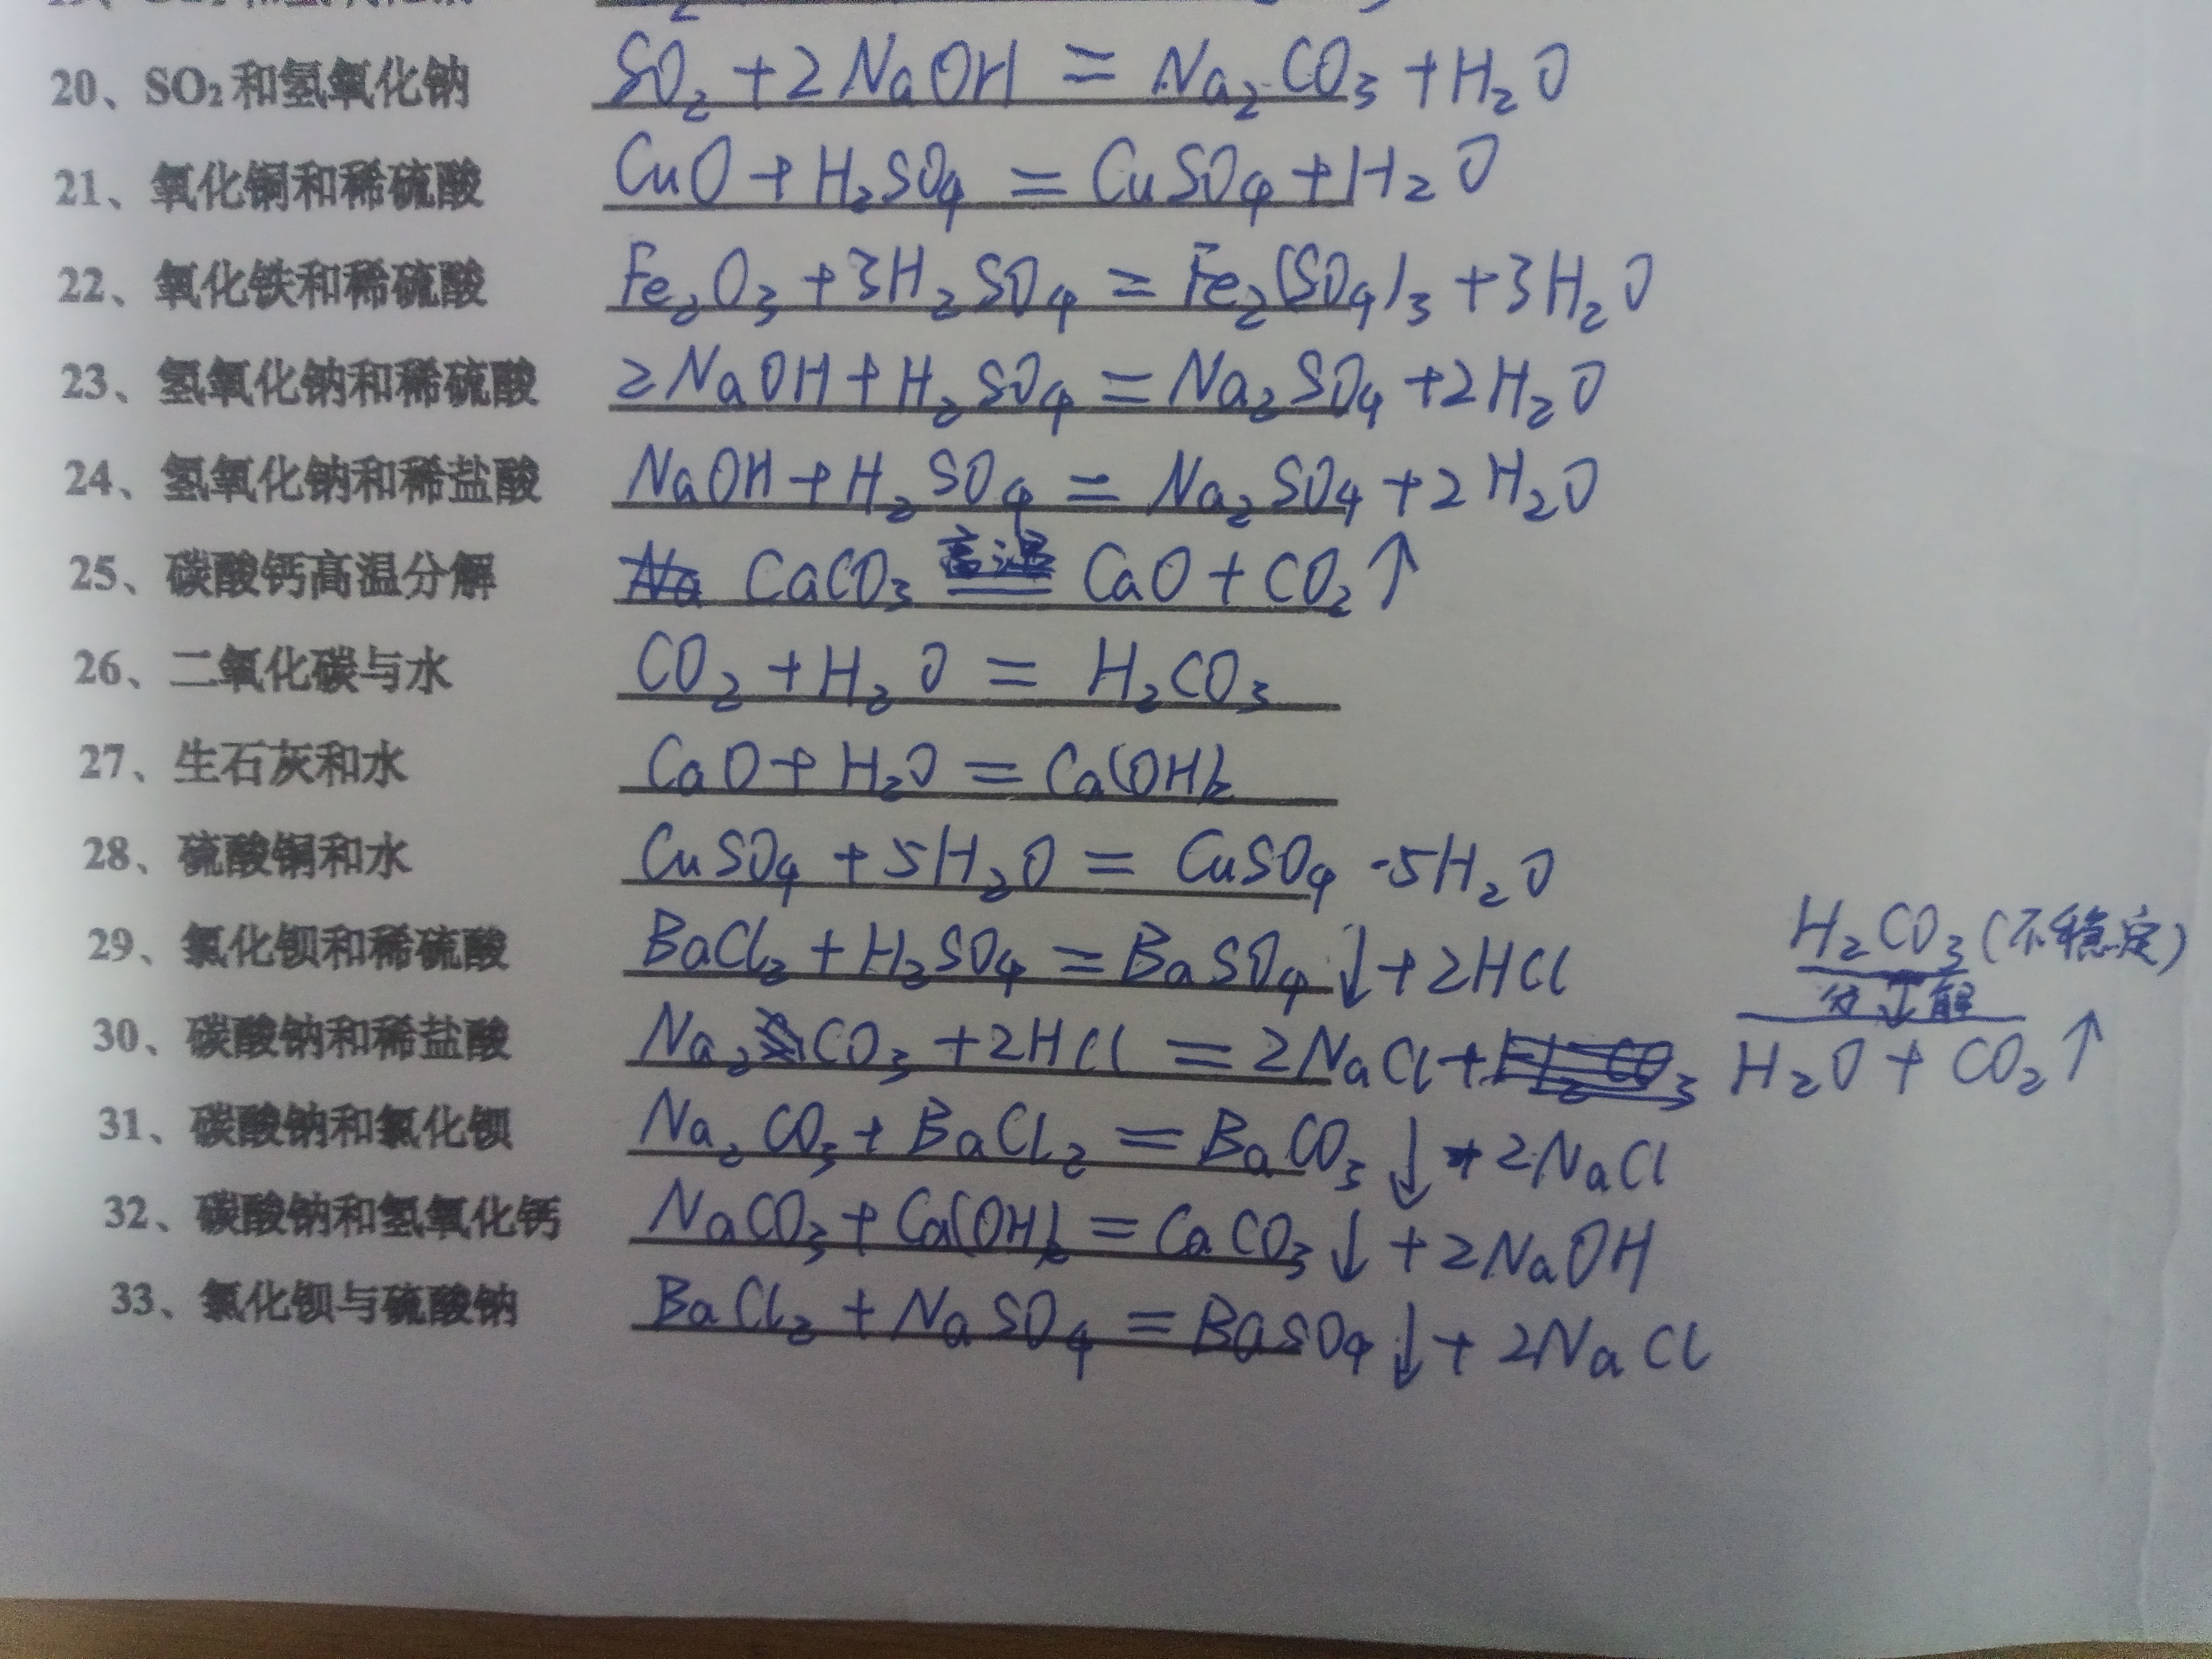 20、SO₂和氢氧化钠 SO₂+2NaOH=Na₂CO₃+H₂O
21、氧化铜和稀硫酸 CuO+H₂SO₄=CuSO₄+H₂O
22、氧化铁和稀硫酸 Fe₂O₃+3H₂SO₄=Fe₂(SO₄)₃+3H₂O
23、氢氧化钠和稀硫酸 2NaOH+H₂SO₄=Na₂SO₄+2H₂O
24、氢氧化钠和稀盐酸 NaOH+H₂SO₄=Na₂SO₄+2H₂O
25、碳酸钙高温分解 CaCO₃ 高温 = CaO+CO₂↑
26、二氧化碳与水 CO₂+H₂O=H₂CO₃
27、生石灰和水 CaO+H₂O=Ca(OH)₂
28、硫酸铜和水 CuSO₄+5H₂O=CuSO₄·5H₂O
29、氯化钡和稀硫酸 BaCl₂+H₂SO₄=BaSO₄↓+2HCl
H₂CO₃(不稳定)
分↓解
30、碳酸钠和稀盐酸 Na₂CO₃+2HCl=2NaCl+H₂O+CO₂↑
31、碳酸钠和氯化钡 Na₂CO₃+BaCl₂=BaCO₃↓+2NaCl
32、碳酸钠和氢氧化钙 NaCO₃+Ca(OH)₂=CaCO₃↓+2NaOH
33、氯化钡与硫酸钠 BaCl₂+NaSO₄=BaSO₄↓+2NaCl